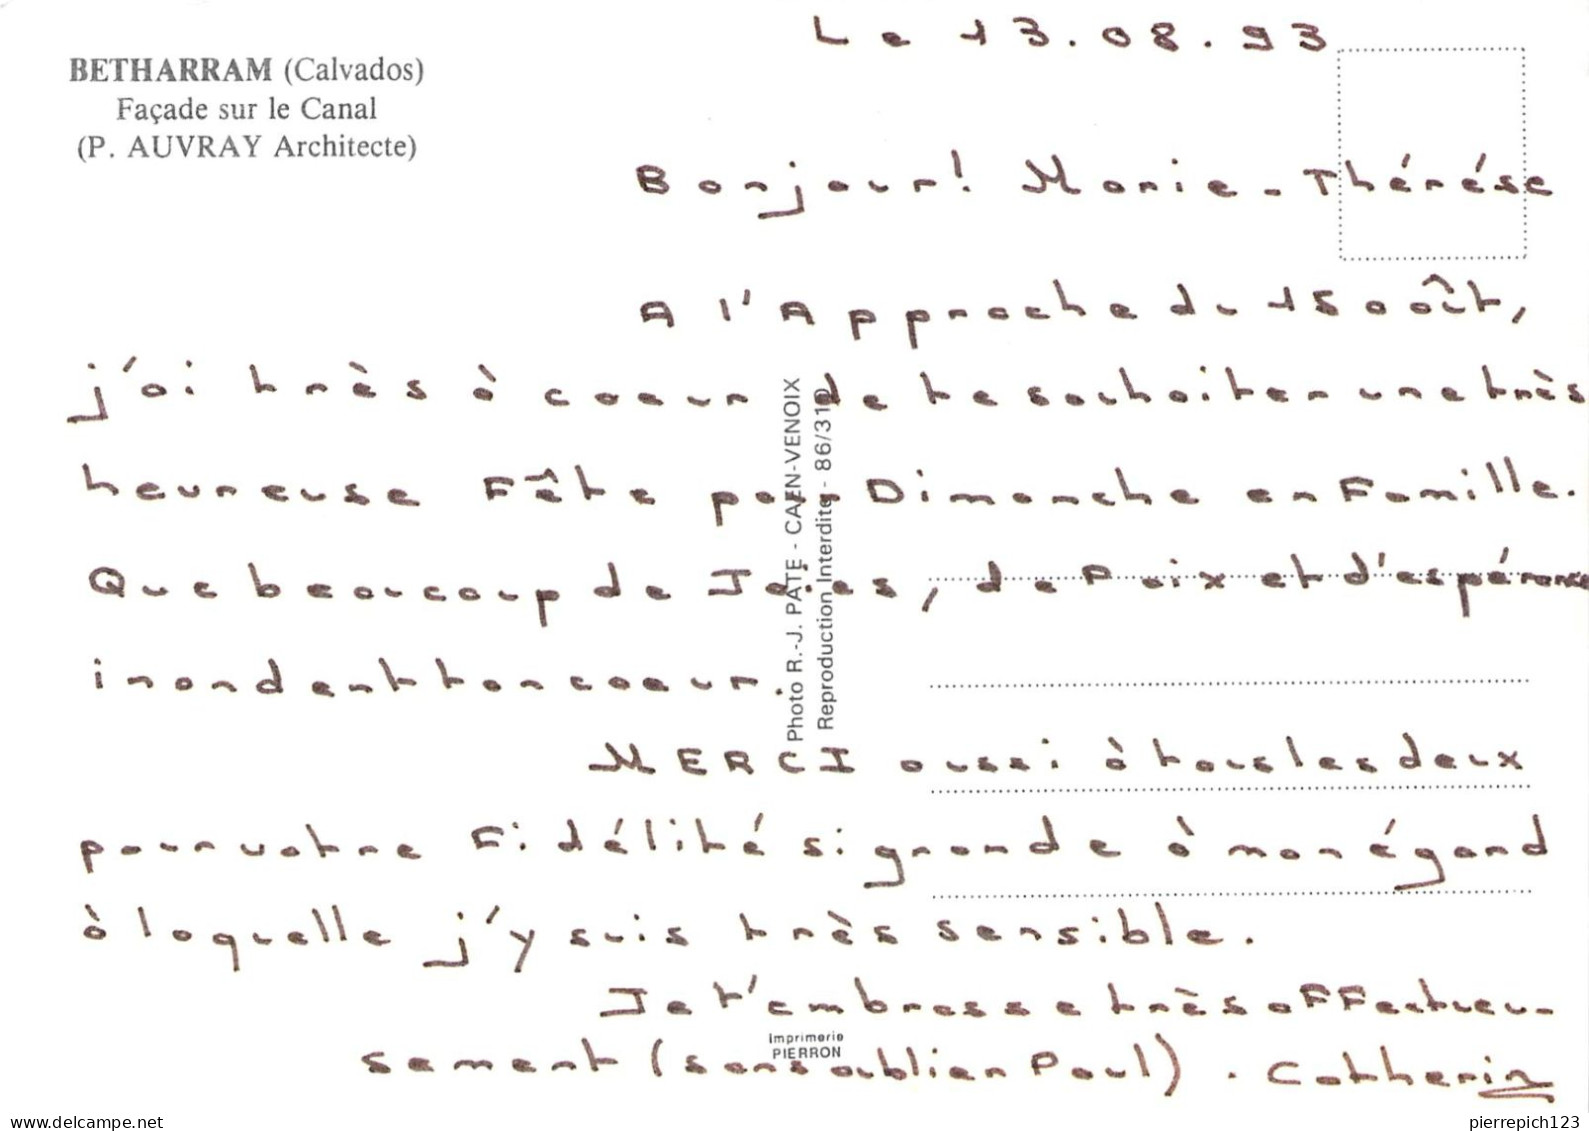 Le 13.08.93
BETHARRAM (Calvados)
Façade sur le Canal
(P. AUVRAY Architecte)
Bonjour! Marie-Thérése
A l'Approche du 15 août,
j'ai très à coeur de te souhaiter une très
heureuse Fête pour Dimanche en Famille.
Que beaucoup de Joies, de Paix et d'espérance
inondent ton coeur.
MERCI aussi à tous les deux
pour votre Fidélité si grande à mon égard
à laquelle j'y suis très sensible.
Je t'embrasse très aFFectueu-
sement (sans oublier Paul). Catherine
Photo R.-J. PATE - CAEN-VENOIX
Reproduction Interdite - 86/310
Imprimerie
PIERRON
delcampe.net
pierrepich123